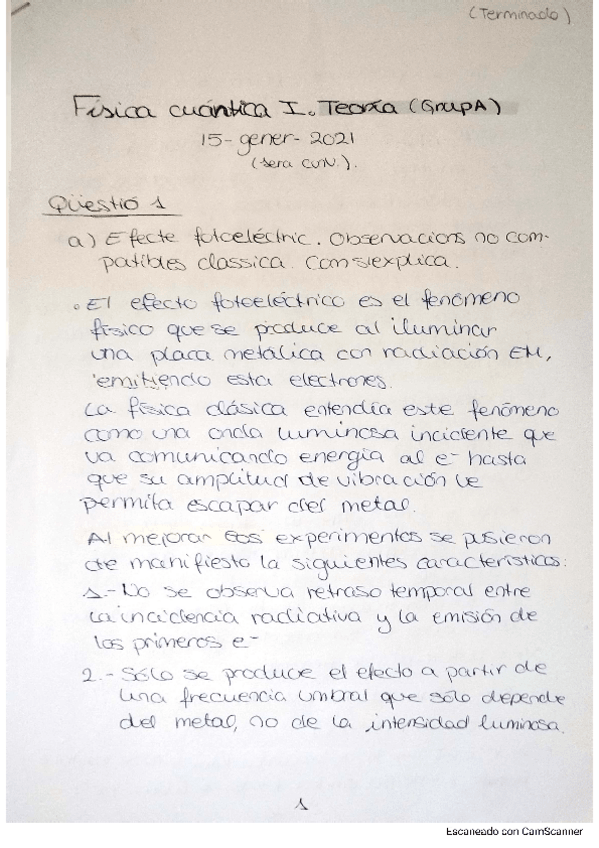 (Terminado)
Física cuántica I. Teoría (Grup A)
15-gener-2021
(1era conv.).
Qüestió 1
a) Efecte fotoeléctric. Observacions no com-
patibles classica. Com s'explica.
• El efecto fotoeléctrico es el fenómeno
físico que se produce al iluminar
una placa metálica con radiación EM,
emitiendo esta electrones.
La física clásica entendía este fenómeno
como una onda luminosa incidente que
va comunicando energía al e- hasta
que su amplitud de vibración le
permita escapar del metal.
Al mejorar los experimentos se pusieron
de manifiesto la siguientes características:
1.- No se observa retraso temporal entre
la incidencia radiativa y la emisión de
los primeros e-
2.- Sólo se produce el efecto a partir de
una frecuencia umbral que sólo depende
del metal, no de la intensidad luminosa.
1
Escaneado con CamScanner